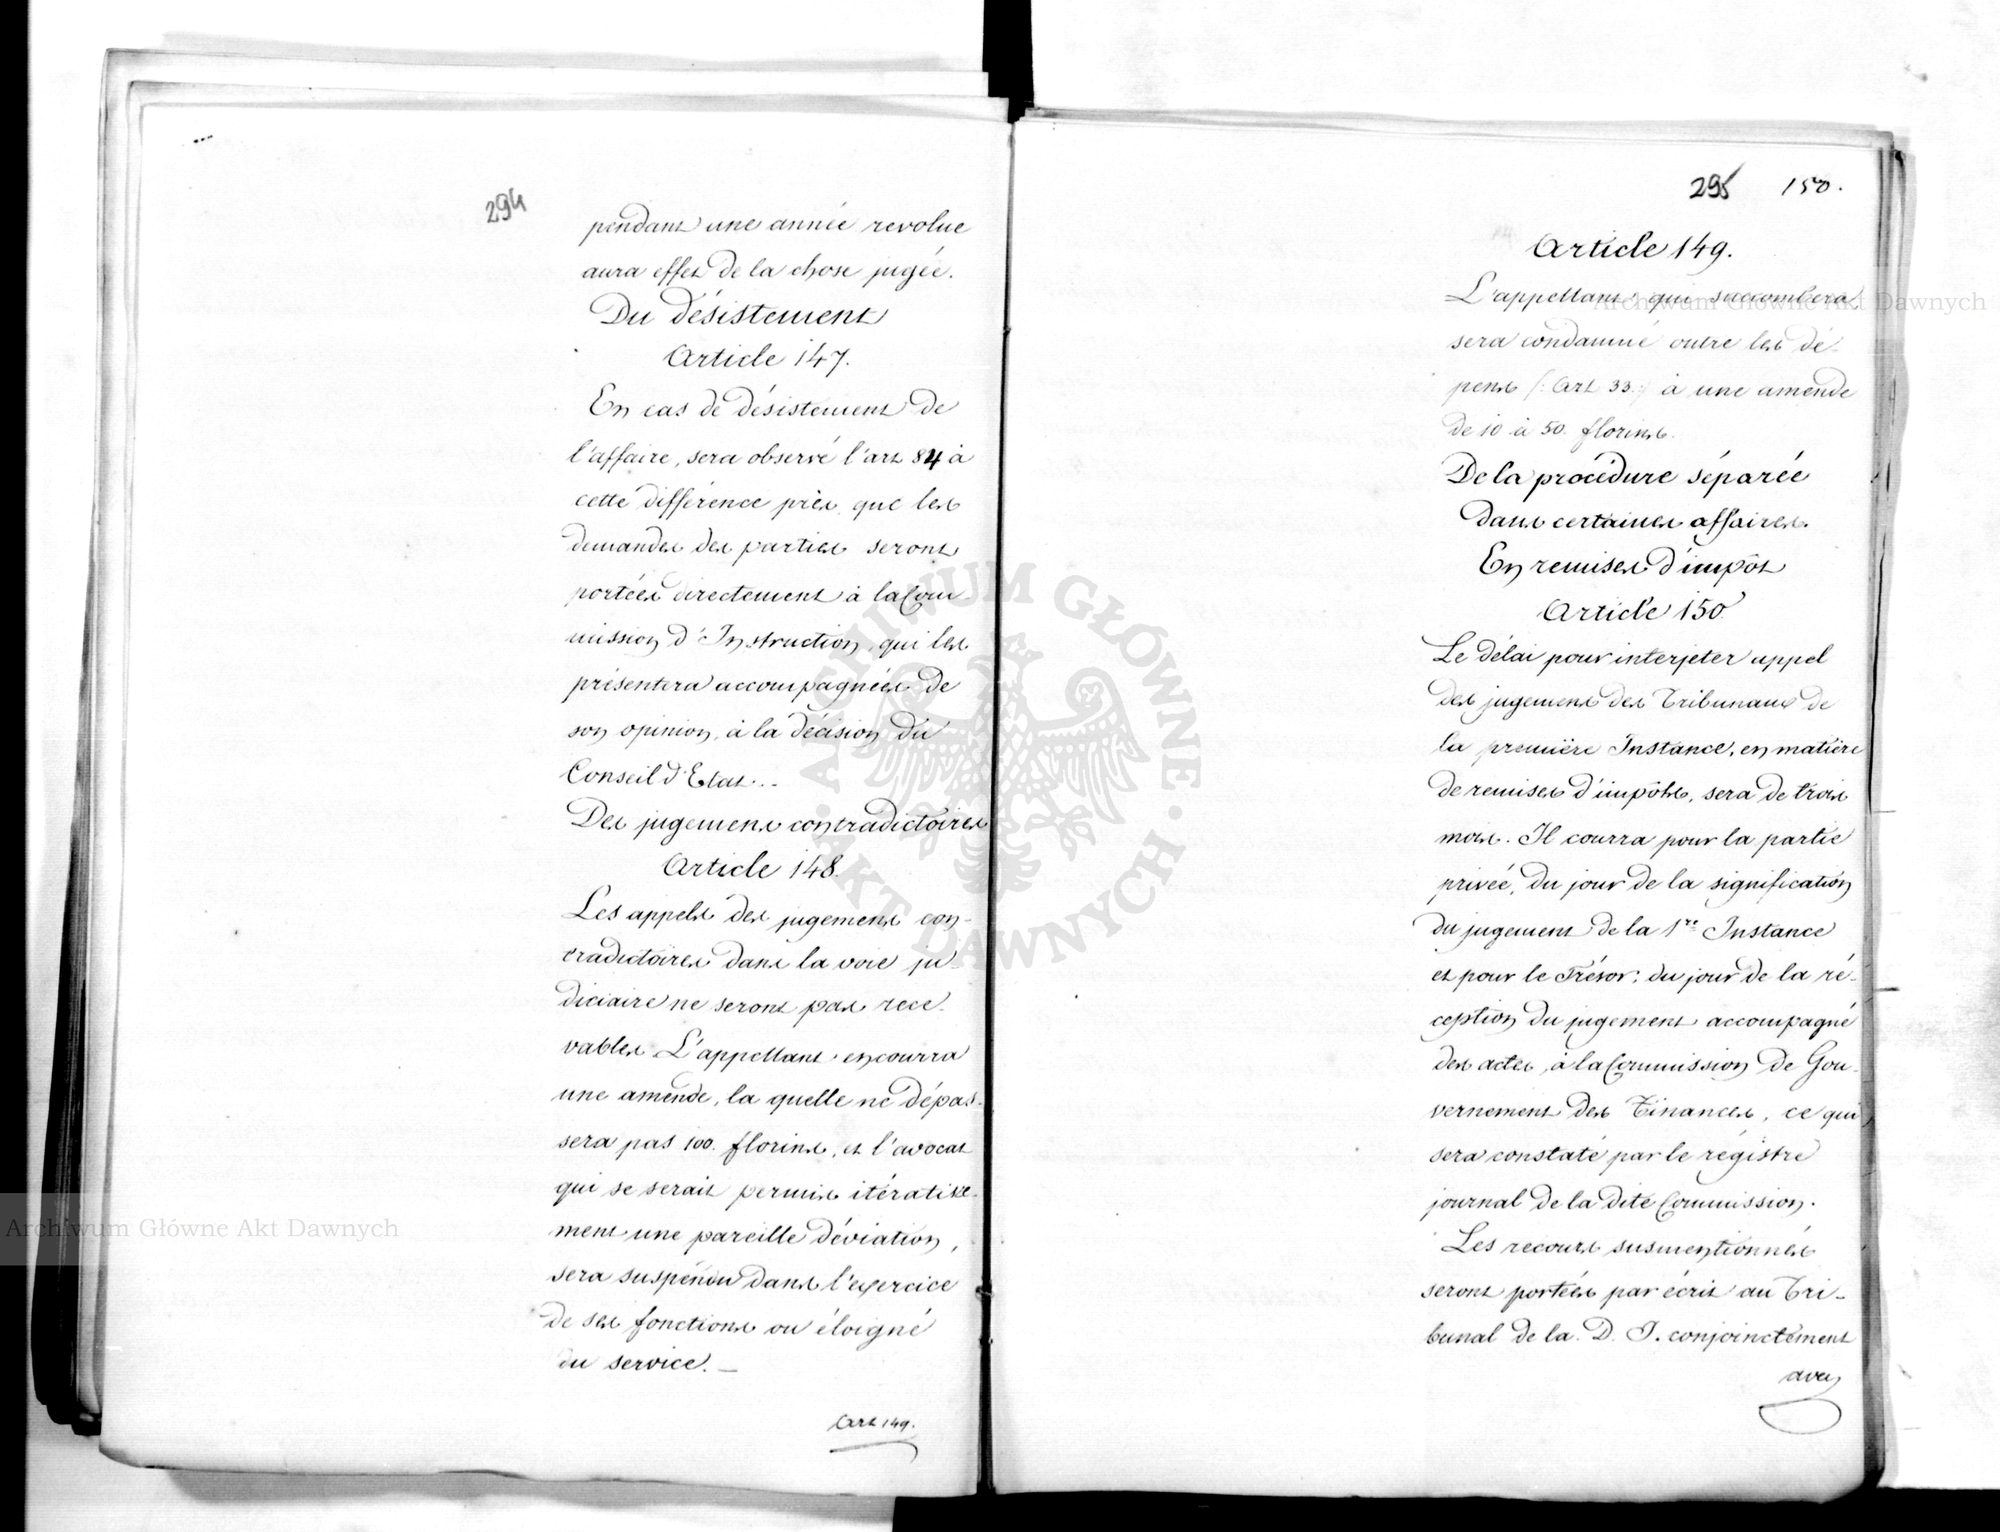 294
pendant une année revolue
aura effet de la chose jugée.
Du désistement
Article 147.
En cas de désistement de
l'affaire, sera observé l'art 84 à
cette différence près que les
demandes des parties seront
portées directement à la Com-
mission d'Instruction, qui les
présentera accompagnées de
son opinion, à la décision du
Conseil d'Etat. -
Des jugemens contradictoires
Article 148.
Les appels des jugemens con-
tradictoires dans la voie ju-
diciaire ne seront pas rece-
vables. L'appellant encourra
une amende, la quelle ne dépas-
sera pas 100. florins, et l'avocat
qui se serait permis itérative-
ment une pareille déviation,
sera suspendu dans l'exercice
de ses fonctions ou éloigné
du service. —
Art 149.
295 150.
Article 149.
L'appellant qui succombera
sera condamné outre les dé-
pens (: Art 33 :) à une amende
de 10 à 50. florins.
De la procédure séparée
dans certaines affaires.
En remises d'impôt
Article 150.
Le délai pour interjeter appel
des jugemens des Tribunaux de
la première Instance, en matière
de remises d'impôts, sera de trois
mois. Il courra pour la partie
privée, du jour de la signification
du jugement de la 1re Instance
et pour le Trésor; du jour de la ré-
ception du jugement accompagné
des actes, à la Commission de Gou-
vernement des Finances, ce qui
sera constaté par le régistre
journal de la dite Commission.
Les recours susmentionnés
seront portés par écrit au Tri-
bunal de la D. I. conjointement
avec
Archiwum Główne Akt Dawnych
Archiwum Główne Akt Dawnych
ARCHIWUM GŁÓWNE · AKT DAWNYCH ·